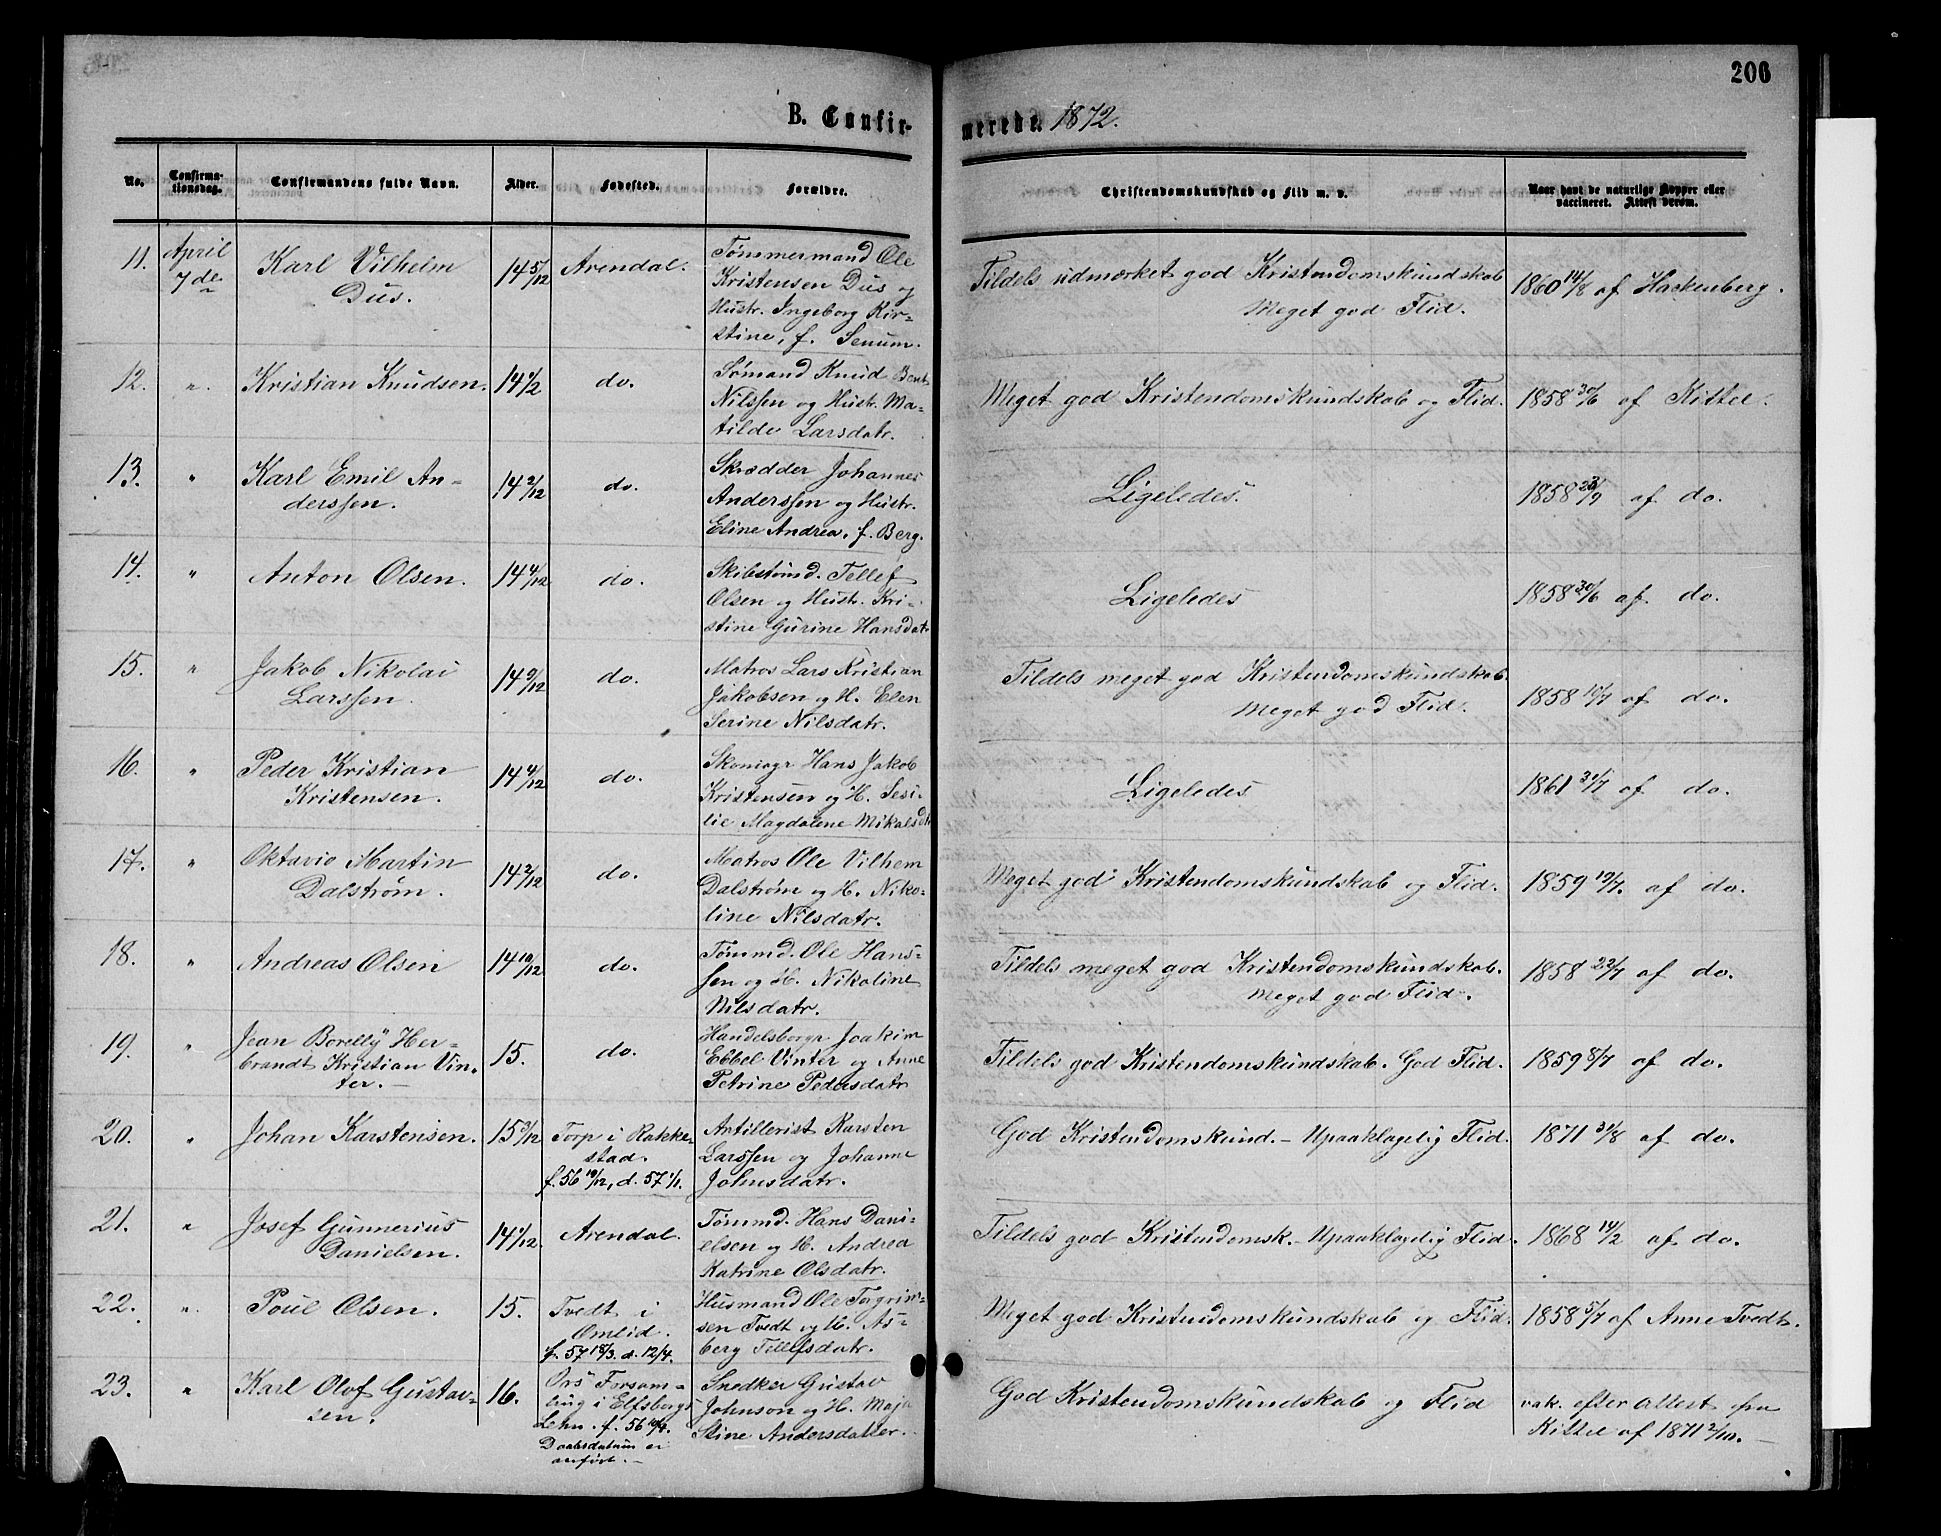 206
B. Confirmerede. 1872.
No. Confirmationsdag. Confirmandens fulde Navn. Alder. Fødested. Forældre. Christendomskundskab og Flid m. v. Naar havt de naturlige Kopper eller vaccineret. Attest derom.
11. April 7de Karl Vilhelm Dus. 14 5/12 Arendal. Tømmermand Ole
Kristensen Dus og
Hustr. Ingeborg Kir-
stine, f. Senum.
Tildels udmærket god Kristendomskundskab
Meget god Flid.
1860 14/8 af Hackenberg.
12. " Kristian Knudsen. 14 1/2 do. Sømand Knud Bent
Nilssen og Hustr. Ma-
tilde Larsdatr.
Meget god Kristendomskundskab og Flid. 1858 30/6 af Kittel.
13. " Karl Emil An-
derssen. 14 2/12 do. Skrædder Johannes
Anderssen og Hustr.
Eline Andrea, f. Berg.
Ligeledes. 1858 23/9 af do.
14. " Anton Olsen. 14 4/12 do. Skibstømd. Tellef
Olsen og Hustr. Kri-
stine Gurine Hansdatr
Ligeledes 1858 30/6 af do.
15. " Jakob Nikolai
Larssen. 14 9/12 do. Matros Lars Kristian
Jakobsen og H. Elen
Serine Nilsdatr.
Tildels meget god Kristendomskundskab.
Meget god Flid. 1858 10/7 af do.
16. " Peder Kristian
Kristensen. 14 4/12 do. Skomagr Hans Jakob
Kristensen og H. Sesi-
lie Magdalene Mikalsdtr
Ligeledes 1861 31/7 af do.
17. " Oktavio Martin
Dalstrøm. 14 2/12 do. Matros Ole Vilhem
Dalstrøm og H. Niko-
line Nilsdatr.
Meget god Kristendomskundskab og Flid. 1859 19/7. af do.
18. " Andreas Olsen 14 10/12 do. Tømmd. Ole Hans-
sen og H. Nikoline
Nilsdatr.
Tildels meget god Kristendomskundskab.
Meget god Flid. 1858 22/7 af do.
19. " Jean Borelly Her-
brandt Kristian Vin-
ter. 15. do. Handelsborgr Joakim
Ebbel Vinter og Anne
Petrine Pedersdatr
Tildels god Kristendomskundskab. God Flid. 1859 8/7 af do.
20. " Johan Karstensen. 15 3/12 Torp i Rakke-
stad.
f. 56 19/12, d. 57 1/1. Artillerist Karsten
Larssen og Johanne
Johnsdatr.
God Kristendomskund. - Upaaklagelig Flid. 1871 31/8 af do.
21. " Josef Gunnerius
Danielsen. 14 1/12. Arendal. Tømmd. Hans Dani-
elsen og H. Andrea
Katrine Olsdatr.
Tildels god Kristendomsk. - Upaaklagelig Flid. 1868 14/2 af do.
22. " Poul Olsen. 15. Tvedt i
Omlid.
f. 57 18/3. d. 12/4. Husmand Ole Torgrim-
sen Tvedt og H. As-
berg Tellefsdatr.
Meget god Kristendomskundskab og Flid. 1858 5/7 af Anne Tvedt.
23. " Karl Olof Gustav-
sen. 16. Ors Forsam-
ling i Elfsborgs
Lehn. f. 56
Daabsdatum ei
anført. - Snedker Gustav
Johnson og H. Maja
Stine Andersdatter.
God Kristendomskundskab og Flid vak. efter Attest fra
Kittel af 1871 2/10. -